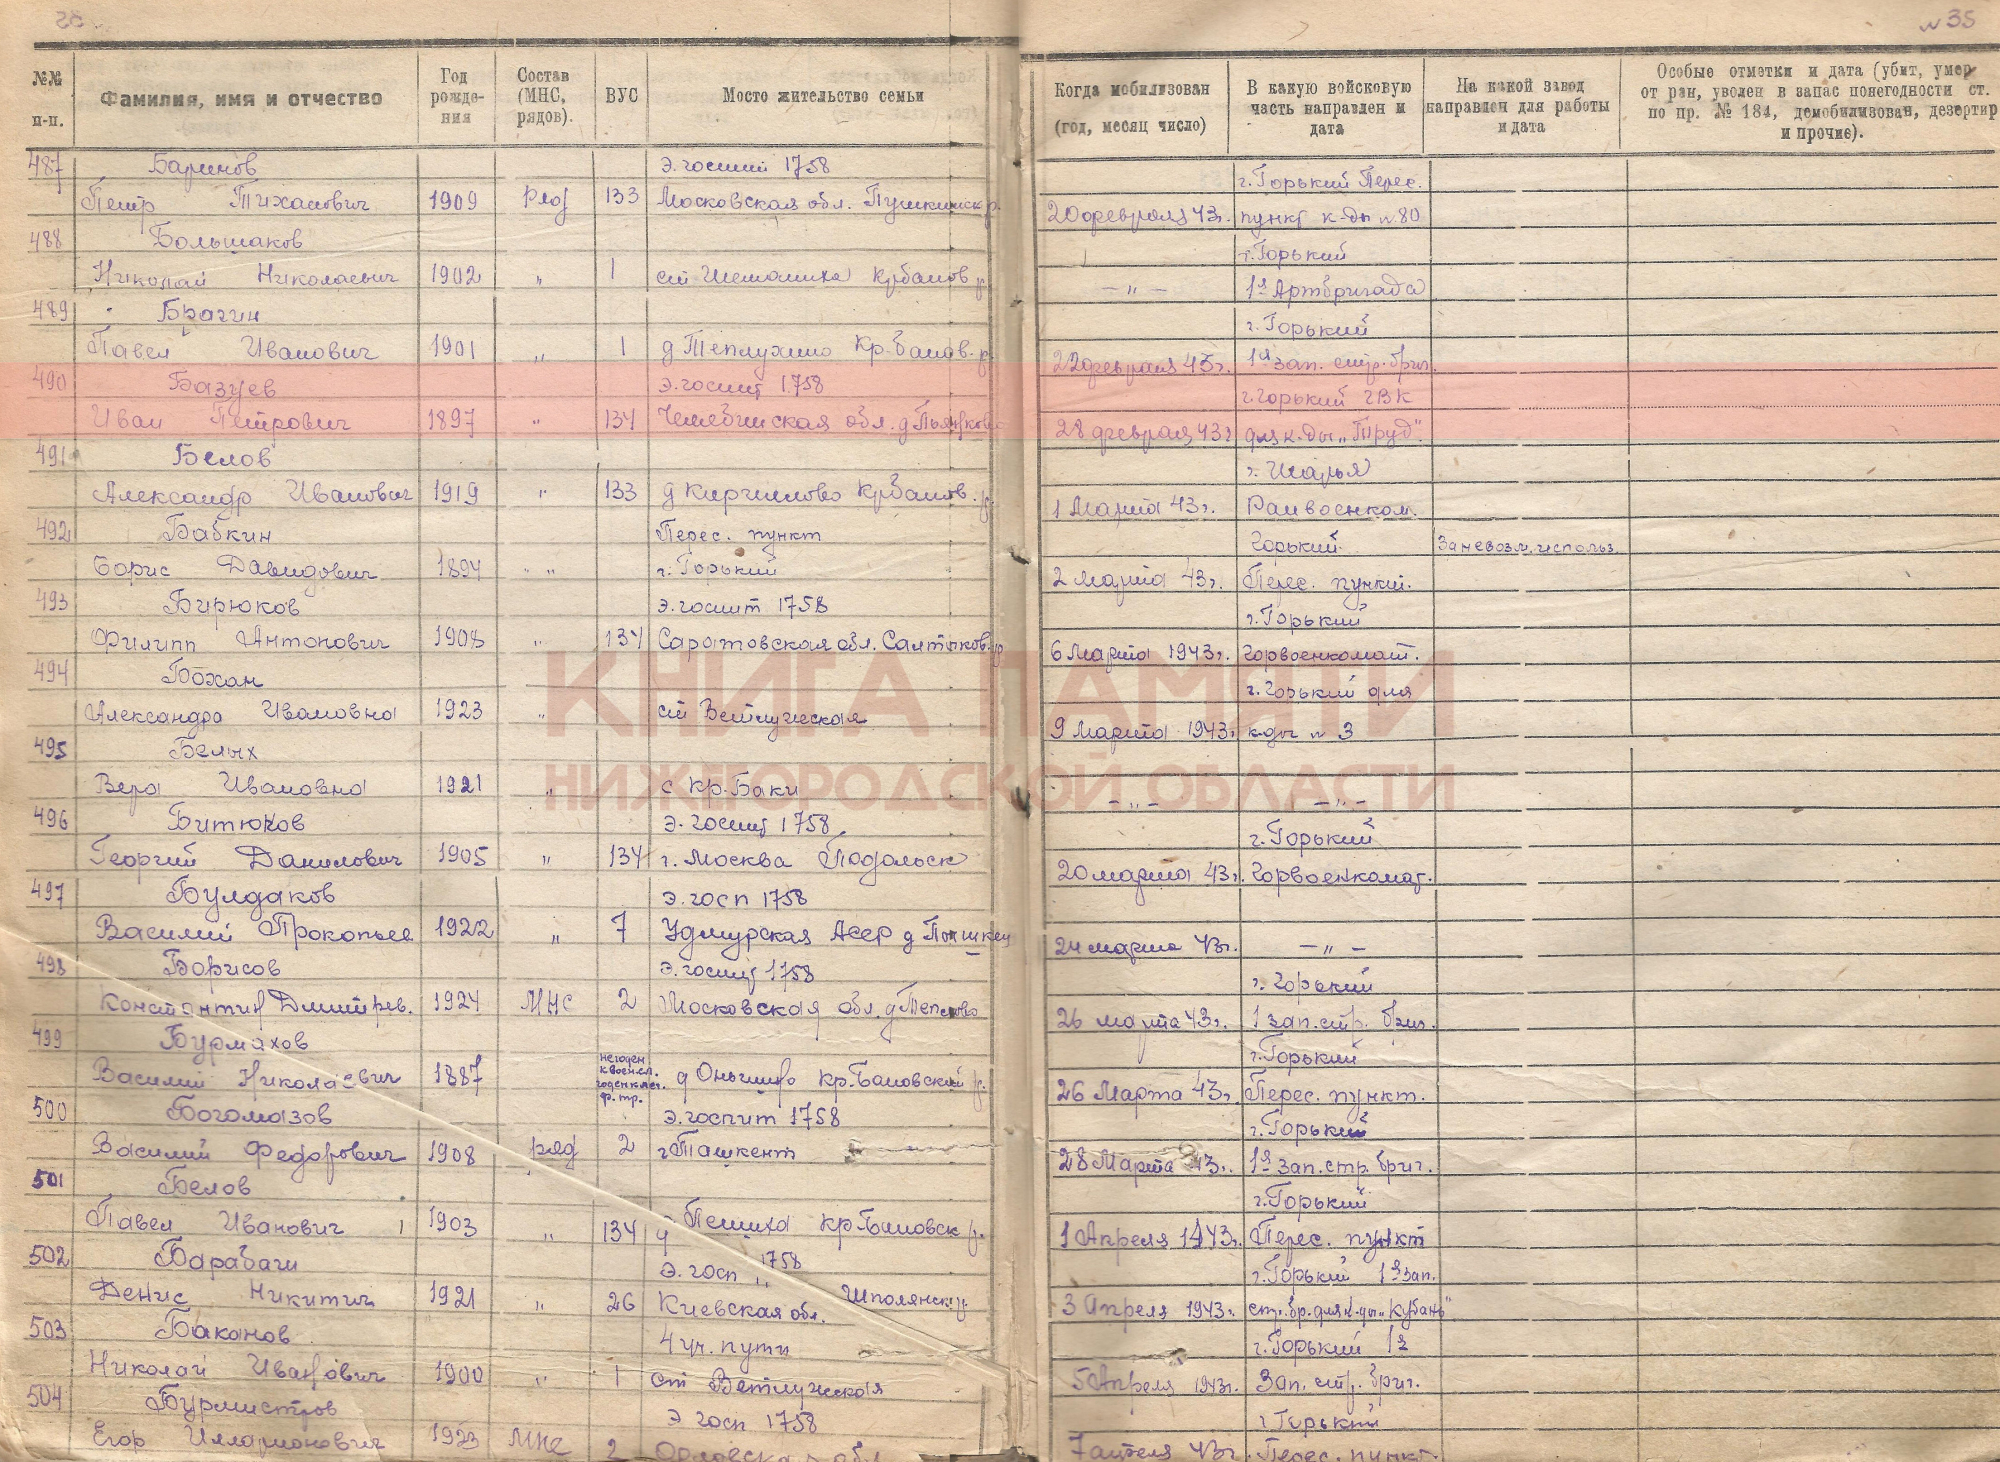 № 35
№№ п-п.
Фамилия, имя и отчество
Год рожде-ния
Состав (МНС, рядов).
ВУС
Мосто жительство семьи
Когда мобилизован (год, месяц число)
В какую войсковую часть направлен и дата
На какой завод направлен для работы и дата
Особые отметки и дата (убит, умер от ран, уволен в запас понегодности ст. по пр. № 184, демобилизован, дезертир и прочие).
487 Баринов э. госпит 1758 г. Горький Перес.
Петр Тиханович 1909 Ряд 133 Московская обл. 20 февраля 43г. пункт к-ды №80
488 Большаков г. Горький
Николай Николаевич 1902 „ 1 ст Шеманиха - „ - 1я Артбригада
489 Брагин г. Горький
Павел Иванович 1901 „ 1 д Теплухино Кр. баков. р. 1я зап. стр. бриг.
490 Базуев э. госпит 1758 г. Горький ГВК
Иван Петрович 1897 „ 134 Челябинская обл. 28 февраля 43г для к-ды „Труд".
491 Белов г. Шарья
Александр Иванович 1919 „ 133 1 Марта 43г. Райвоенком.
492 Бабкин Перес. пункт Горький За невозм. использ.
Борис Давидович 1894 „ г. Горький 2 марта 43г. Перес. пункт.
493 Бирюков э. госпит 1758 г. Горький
Филипп Антонович 1908 „ 134 Саратовская обл. 6 Марта 1943г. Горвоенкомат.
494 Бохан г. Горький для
Александра Ивановна 1923 „ ст Ветлужская 9 Марта 1943г. к-ды № 3
495 Белых
Вера Ивановна 1921 „ с Кр. Баки - „ - - „ -
496 Битюков э. госпит 1758 г. Горький
Георгий Данилович 1905 „ 134 г. Москва Подольск 20 марта 43г. Горвоенкомат.
497 Булдаков э. госп 1758
Василий Прокопьев 1922 „ 7 Удмурская Асср д 24 марта 43г. - „ -
498 Борисов э. госпит 1758 г. Горький
Константин Дмитрев. 1924 МНС 2 Московская обл. 26 марта 43г. 1 зап. стр. бриг.
499 Бурмахов г. Горький
Василий Николаевич 1887 негоден к воен. сл. годен к лег. ф. тр. Кр. Баковский р. 26 Марта 43г. Перес. пункт.
500 Богомазов э. госпит 1758 г. Горький
Василий Федорович 1908 ряд 2 г Ташкент 28 Марта 43г. 1я зап. стр. бриг.
501 Белов г. Горький
Павел Иванович 1903 „ 134 1 Апреля 1943г. Перес. пункт
502 Барабаш э. госп 1758 г. Горький 1я зап.
Денис Никитич 1921 „ 26 Киевская обл. Шполянск. р. 3 Апреля 1943г. стр. бр. для к-ды „Кубань"
503 Баканов 4 уч. пути г. Горький 1я
Николай Иванович 1900 „ 1 ст Ветлужская 5 Апреля 1943г. Зап. стр. бриг.
504 Бурмистров э госп 1758 г Горький
Егор Илларионович 1923 МНС 2 Орловская обл. 7 апреля 43г. Перес. пункт.
КНИГА ПАМЯТИ
НИЖЕГОРОДСКОЙ ОБЛАСТИ